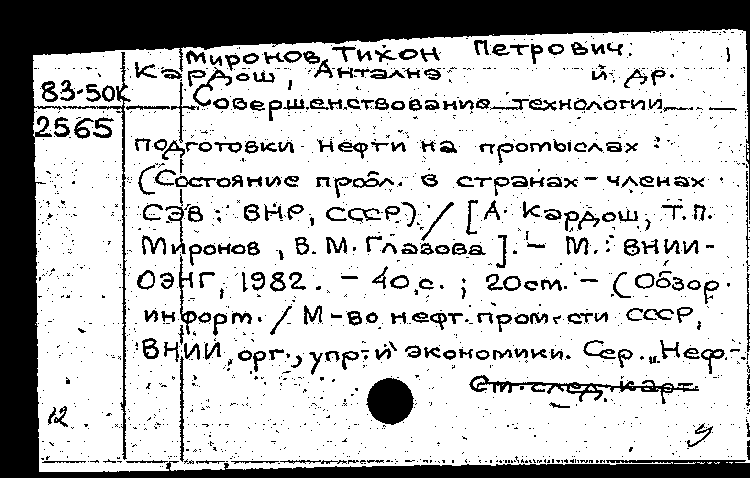 Миронов, Тихон Петрович.
Кардош, Анталнэ. и др.
83-50К Совершенствование технологии
2565
подготовки нефти на промыслах :
(Состояние пробл. в странах-членах
СЭВ: ВНР, СССР) / [А. Кардош, Т.П.
Миронов, В.М. Глазова]. - М.: ВНИИ-
ОЭНГ, 1982. - 40 с. ; 20 см. - (Обзор.
информ. / М-во нефт. пром-сти СССР,
ВНИИ орг., упр. и экономики. Сер. „Неф-
См. след. карт.
12